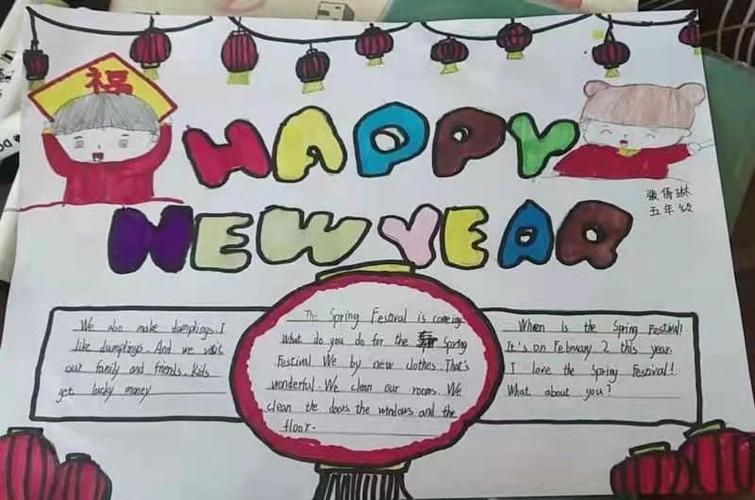 福
HAPPY
NEW YEAR
张倩琳
五年级
We also make dumplings. I
like dumplings. And we visit
our family and friends. Kids
get lucky money
The Spring Festival is coming.
What do you do for the Spring
Festival We by new clothes. That's
wonderful. We clean our rooms. We
clean the doors the windows and the
floor.
When is the Spring Festival!
It's on February 2 this year.
I love the Spring Festival!
What about you?